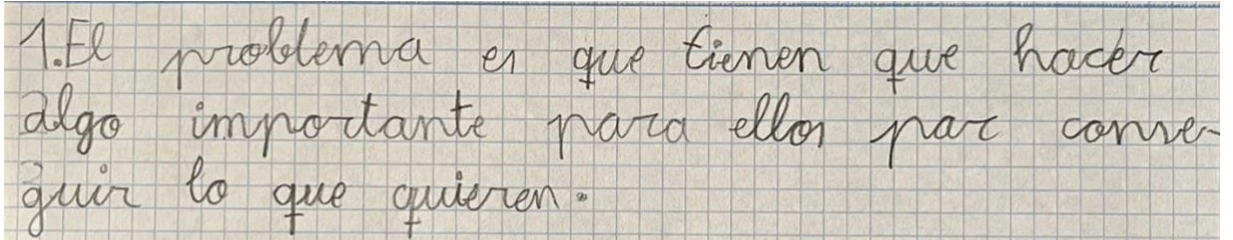 1.El problema es que tienen que hacer
algo importante para ellos par conse-
guir lo que quieren.